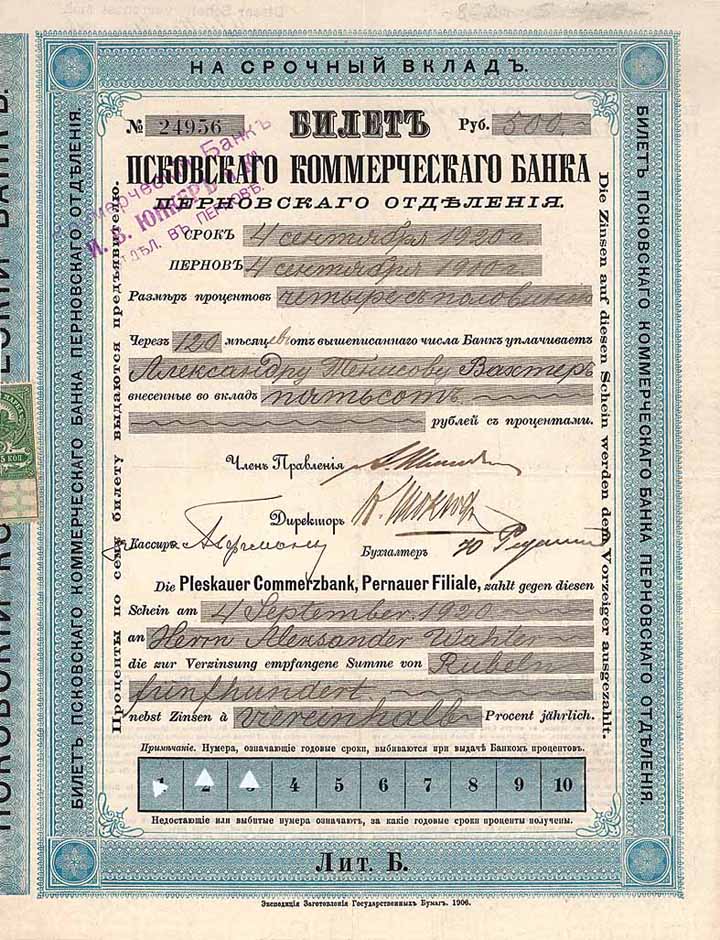 НА СРОЧНЫЙ ВКЛАДЪ.
№ 24956 БИЛЕТЪ Руб. 500.
ПСКОВСКАГО КОММЕРЧЕСКАГО БАНКА
ПЕРНОВСКАГО ОТДѢЛЕНІЯ.
Коммерческій Банкъ
И. В. ЮНКЕРЪ и Ко
ОТДѢЛ. ВЪ ПЕРНОВѢ.
СРОКЪ 4 сентября 1920 г.
ПЕРНОВЪ 4 сентября 1910 г.
Размѣръ процентовъ четыре съ половиною
Черезъ 120 мѣсяцевъ отъ вышеписаннаго числа Банкъ уплачиваетъ
Александру Тенисову Вахтеръ
внесенные во вкладъ пятьсотъ
рублей съ процентами.
Членъ Правленія
Директоръ
Кассиръ
Бухгалтеръ
Die Pleskauer Commerzbank, Pernauer Filiale, zahlt gegen diesen
Schein am 4 September 1920
an Herrn Alexsander Wahter
die zur Verzinsung empfangene Summe von Rubeln
fünfhundert
nebst Zinsen à viereinhalb Procent jährlich.
Примѣчаніе. Нумера, означающіе годовые сроки, выбиваются при выдачѣ Банкомъ процентовъ.
1 2 3 4 5 6 7 8 9 10
Недостающіе или выбитые нумера означаютъ, за какіе годовые сроки проценты получены.
Лит. Б.
Экспедиція Заготовленія Государственныхъ Бумагъ. 1906.
Проценты по сему билету выдаются предъявителю.
Die Zinsen auf diesen Schein werden dem Vorzeiger ausgezahlt.
БИЛЕТЪ ПСКОВСКАГО КОММЕРЧЕСКАГО БАНКА ПЕРНОВСКАГО ОТДѢЛЕНІЯ.
БИЛЕТЪ ПСКОВСКАГО КОММЕРЧЕСКАГО БАНКА ПЕРНОВСКАГО ОТДѢЛЕНІЯ.